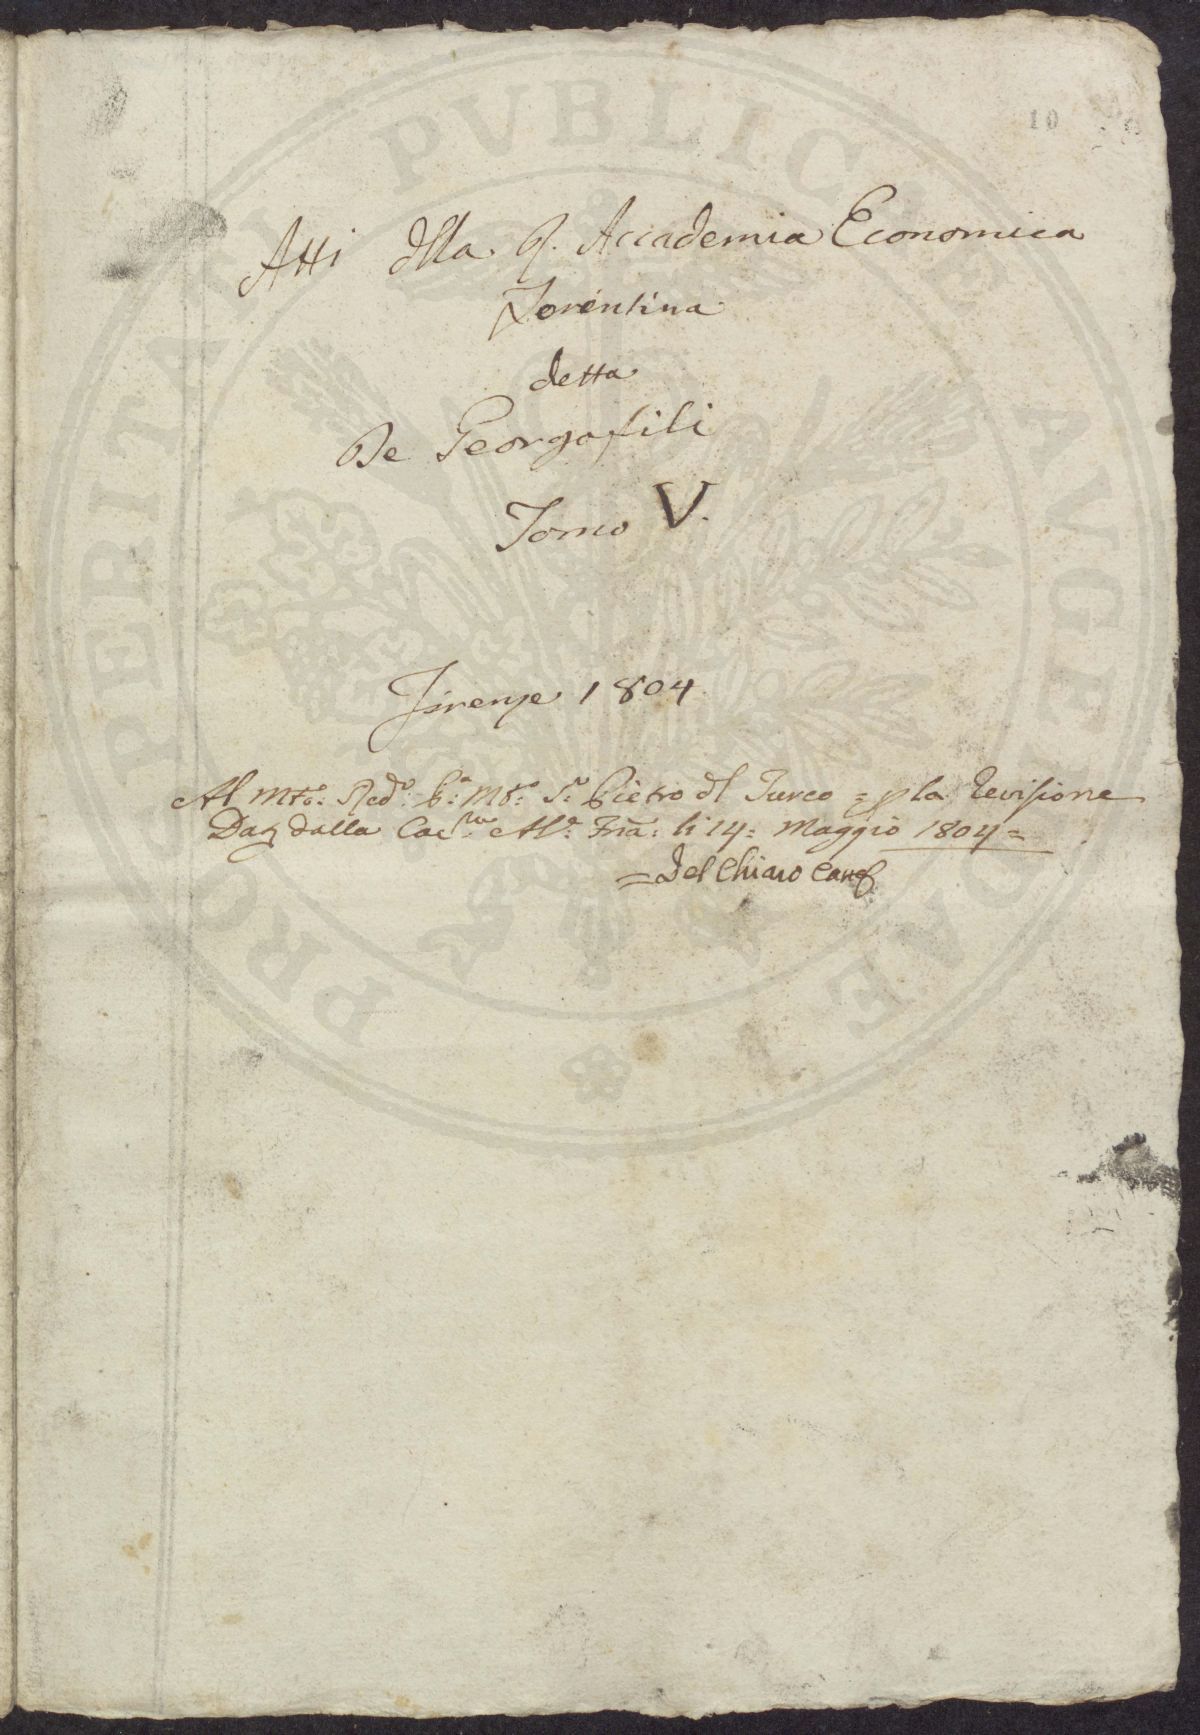 10
Atti della R. Accademia Economica
Fiorentina
detta
De Georgofili
Tomo V.
Firenze 1804.
Al Mto: Redo: Pietro del Turco = p la Revisione
Dat dalla li 14 = Maggio 1804 =
= Del Chiaro Canc
PROPERITATI PVBLICAE AVGENDAE